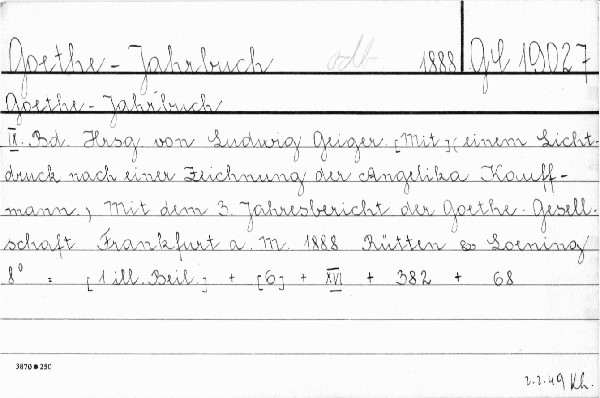 Goethe - Jahrbuch odb 1888 GL 19027
Goethe - Jahrbuch
IX. Bd. Hrsg. von Ludwig Geiger. [Mit] (einem Licht-
druck nach einer Zeichnung der Angelika Kauff-
mann.) Mit dem 3. Jahresbericht der Goethe-Gesell-
schaft. Frankfurt a. M. 1888 Rütten & Loening
8° = [1 ill. Beil.] + [6] + XVI + 382 + 68
3870 ● 250
2.2.49 Kh.